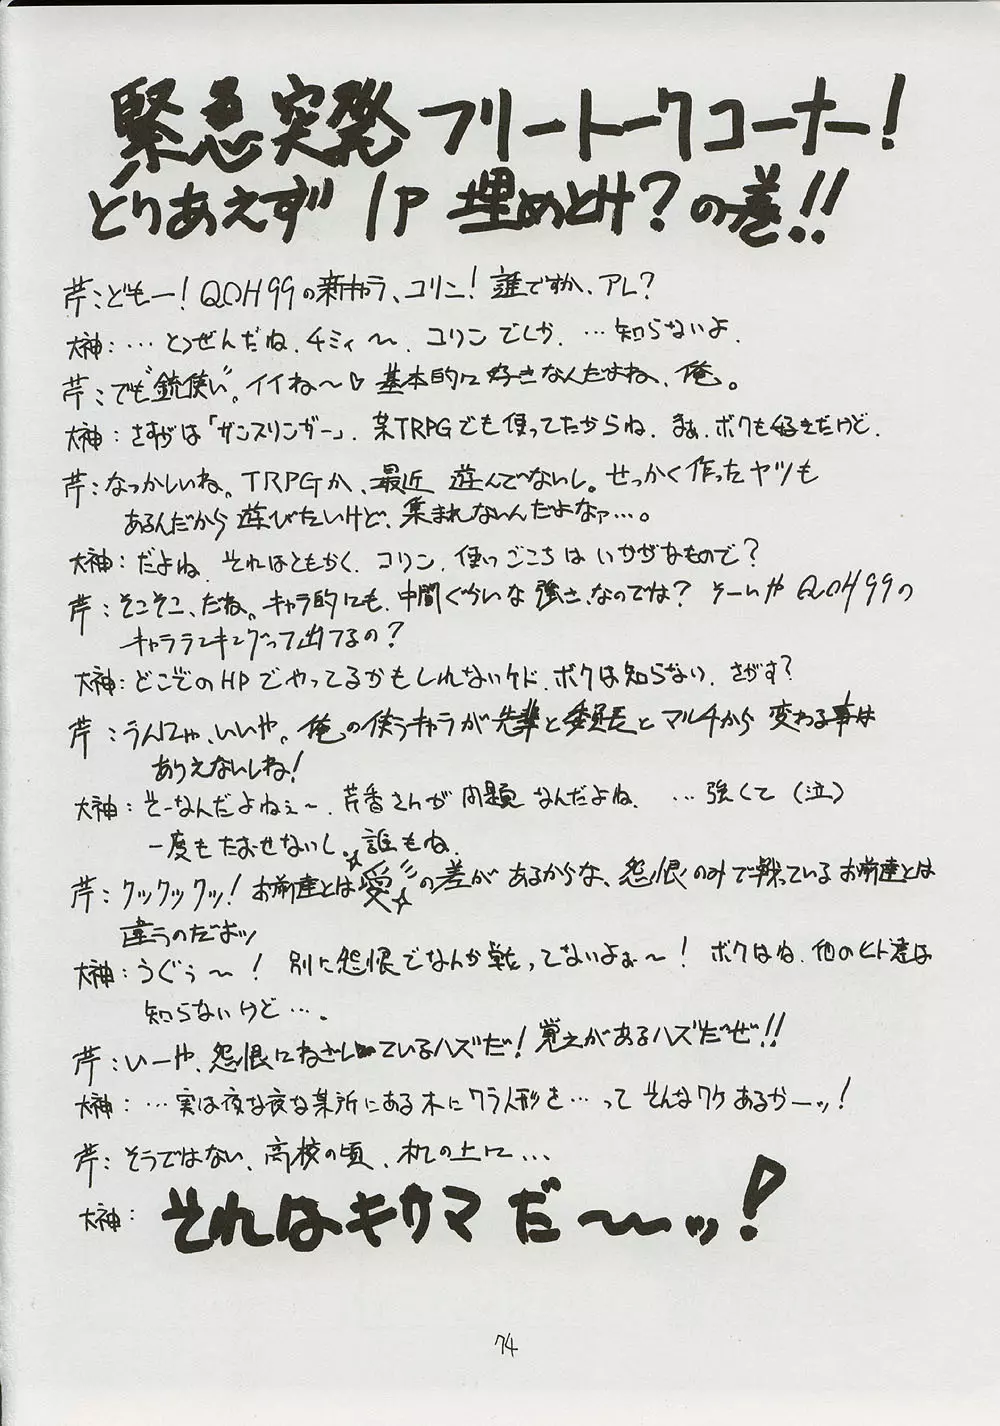 緊急突発フリートークコーナー!
とりあえず1P埋めとけ?の巻!!
芹:どもー!QOH99の新キャラ、コリン!誰ですか、アレ?
大神:…とつぜんだね、チミィ〜。コリンでしか。…知らないよ。
芹:でも"銃使い"。イイね〜♡基本的に好きなんだよね、俺。
大神:さすがは「ガンスリンガー」。某TRPGでも使ってたからね。まぁ、ボクも好きだけど。
芹:なつかしいね。TRPGか、最近遊んでないし。せっかく作ったヤツも
あるんだから遊びたいけど、集まれないんだよなァ…。
大神:だよね。それはともかく、コリン、使いごこちはいかがなもので?
芹:そこそこ、だね。キャラ的にも、中間ぐらいな強さ、なのでは?そーいやQOH99の
キャラランキングって出てるの?
大神:どこぞのHPでやってるかもしれないケド、ボクは知らない。さがす?
芹:うんにゃ、いいや。俺の使うキャラが先輩と委員長とマルチから変わる事は
ありえないしね!
大神:そーなんだよねぇ〜。芹香さんが問題なんだよね。…強くて(泣)
一度もたおせないし、誰もね。
芹:クックックッ!お前達とは☆愛☆の差があるからな、怨恨のみで戦っているお前達とは
違うのだよッ
大神:うぐぅ〜!別に怨恨でなんか戦ってないよぉ〜!ボクはね、他のヒト達は
知らないけど…。
芹:いーや、怨恨にねざしているハズだ!覚えがあるハズだぜ!!
大神:…実は夜な夜な某所にある木にワラ人形を…ってそんなワケあるかーッ!
芹:そうではない、高校の頃、机の上に…
大神:それはキサマだ〜〜ッ!
74